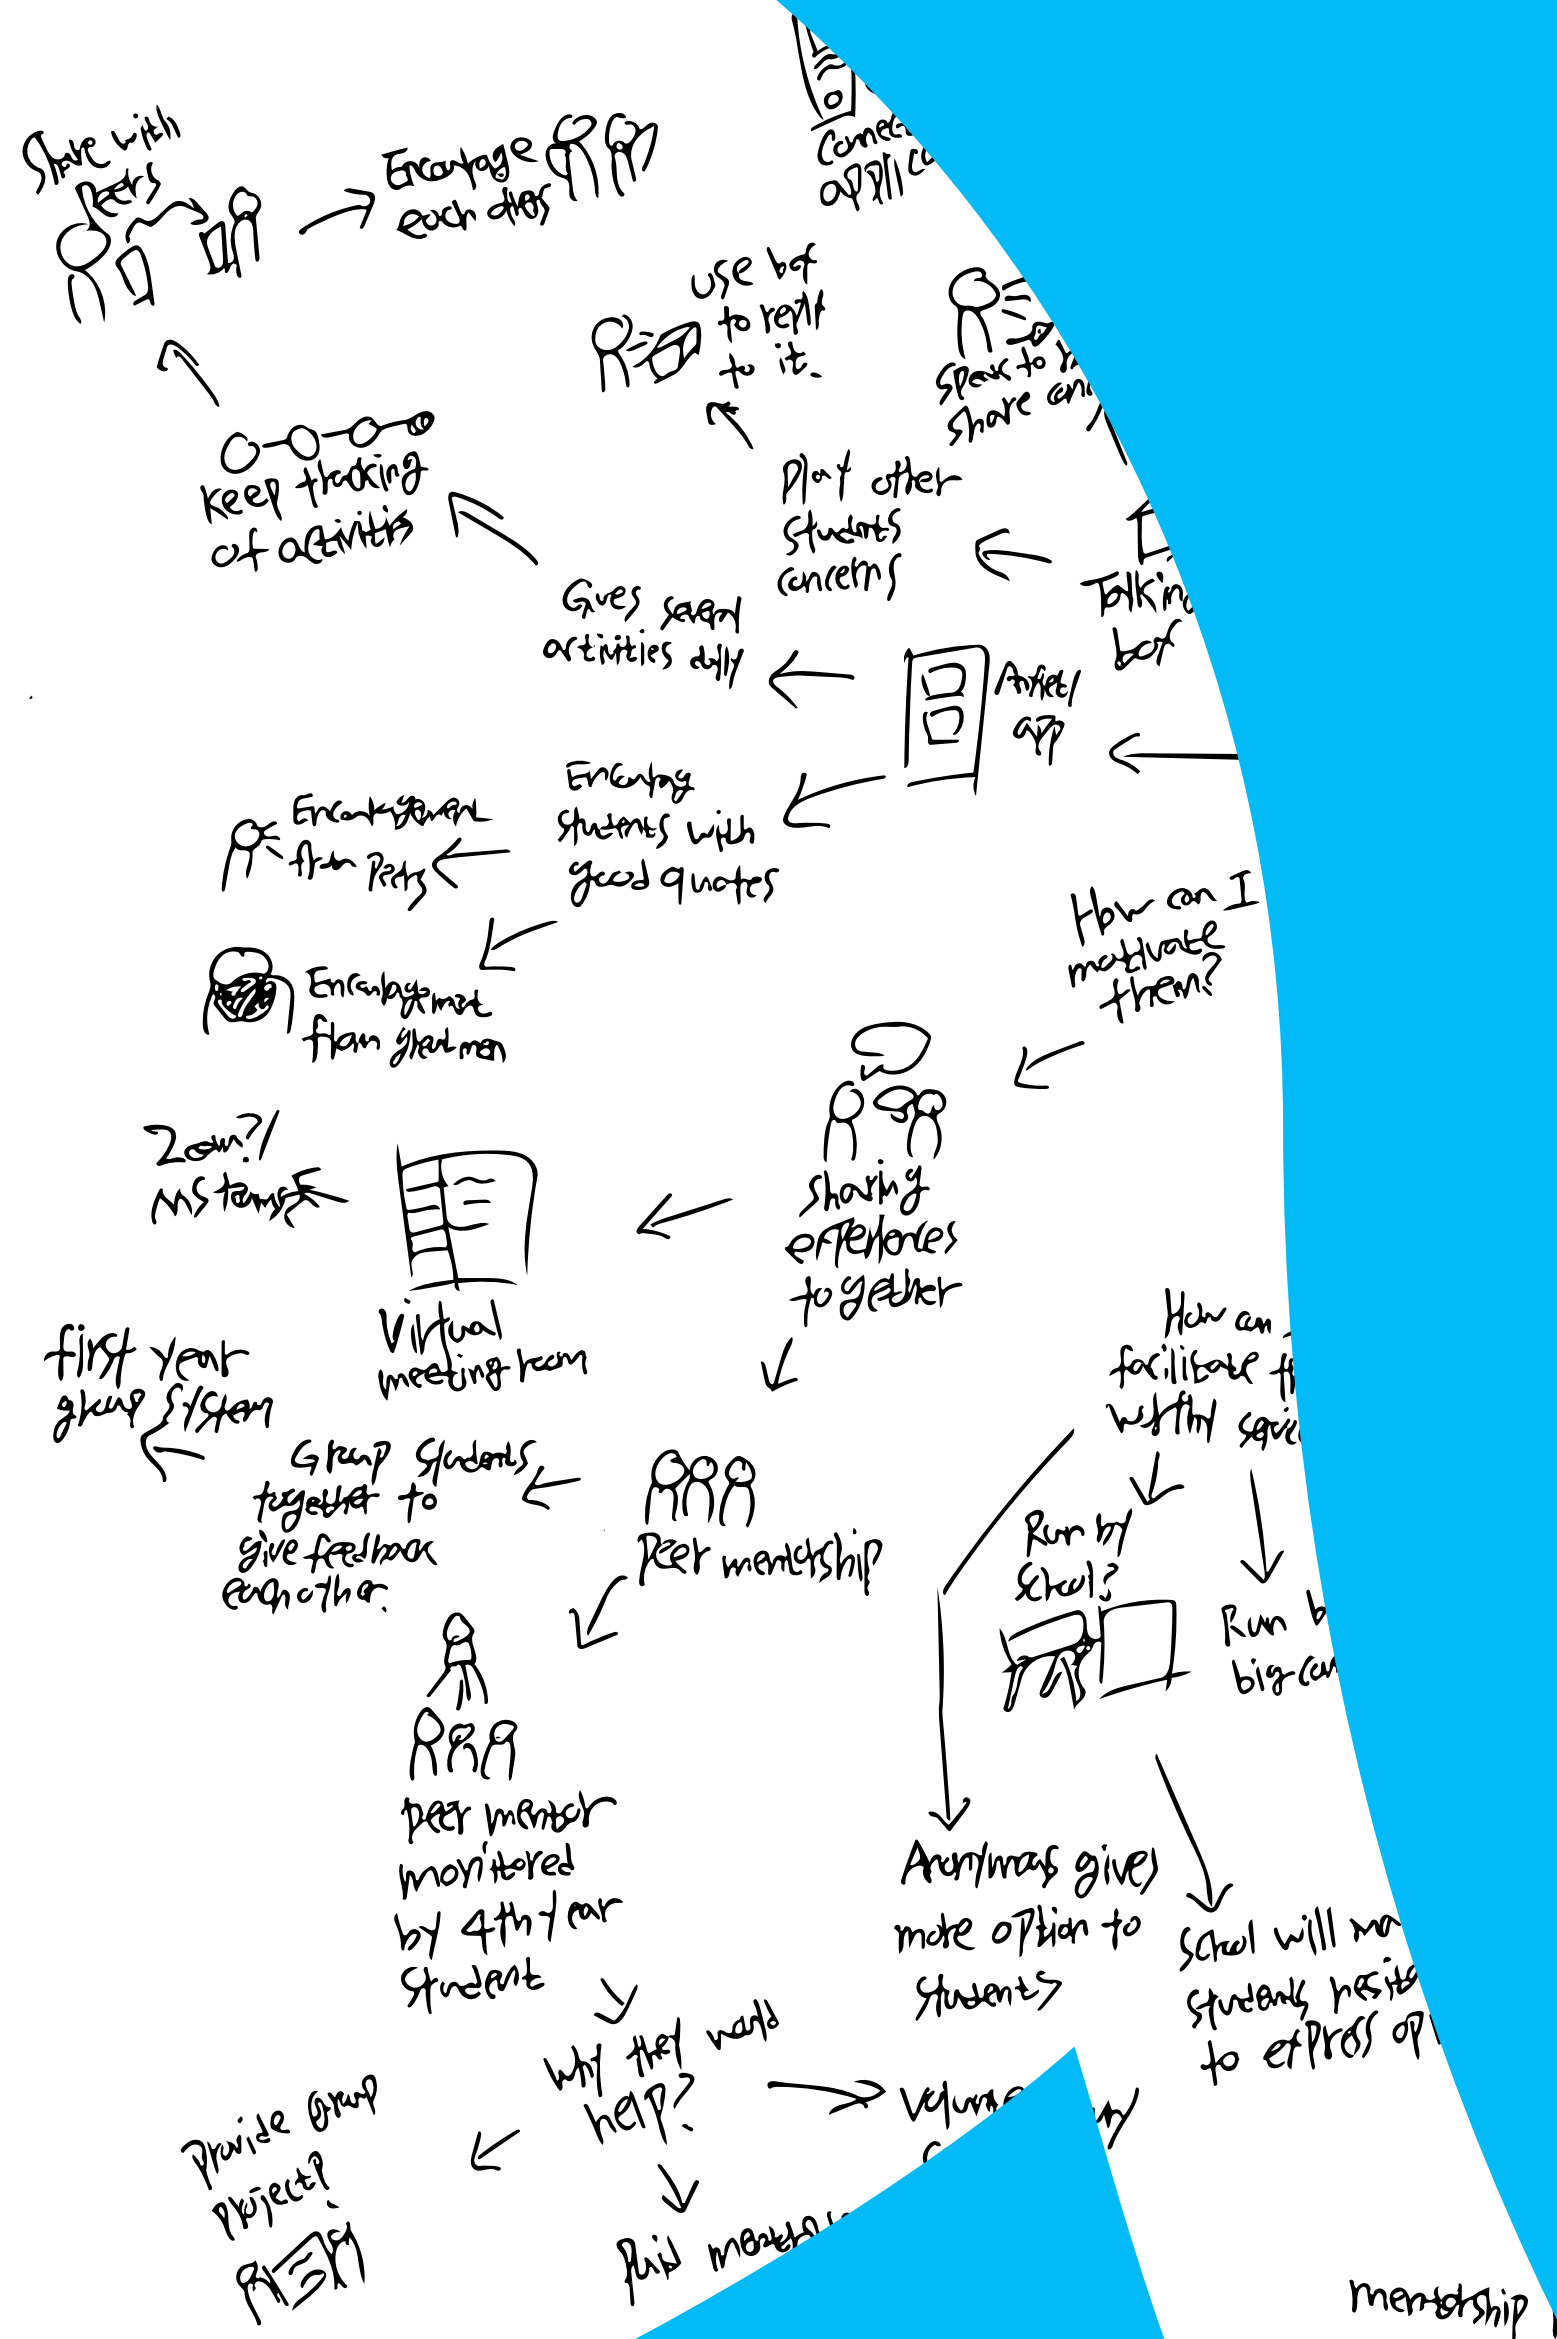 Share with
Peers
Encourage
each others
use bot
to reply
to it.
Speak to
share
keep tracking
of activities
Play other
students
concerns
Talking
bot
Gives several
activities daily
Anxiety
app
Encourage
students with
good quotes
Encouragement
from Peers
Encouragement
from
How can I
motivate
them?
sharing
experiences
together
Zoom?/
MS teams
Virtual
meeting room
first year
group system
Group students
together to
give feedback
each other.
Peer mentorship
How can
facilitate
Run by
School?
Run
big
peer mentor
monitored
by 4th year
student
Anonymous gives
more option to
students
School will
students
to express
Why they would
help?
Provide group
project?
Paid
mentorship